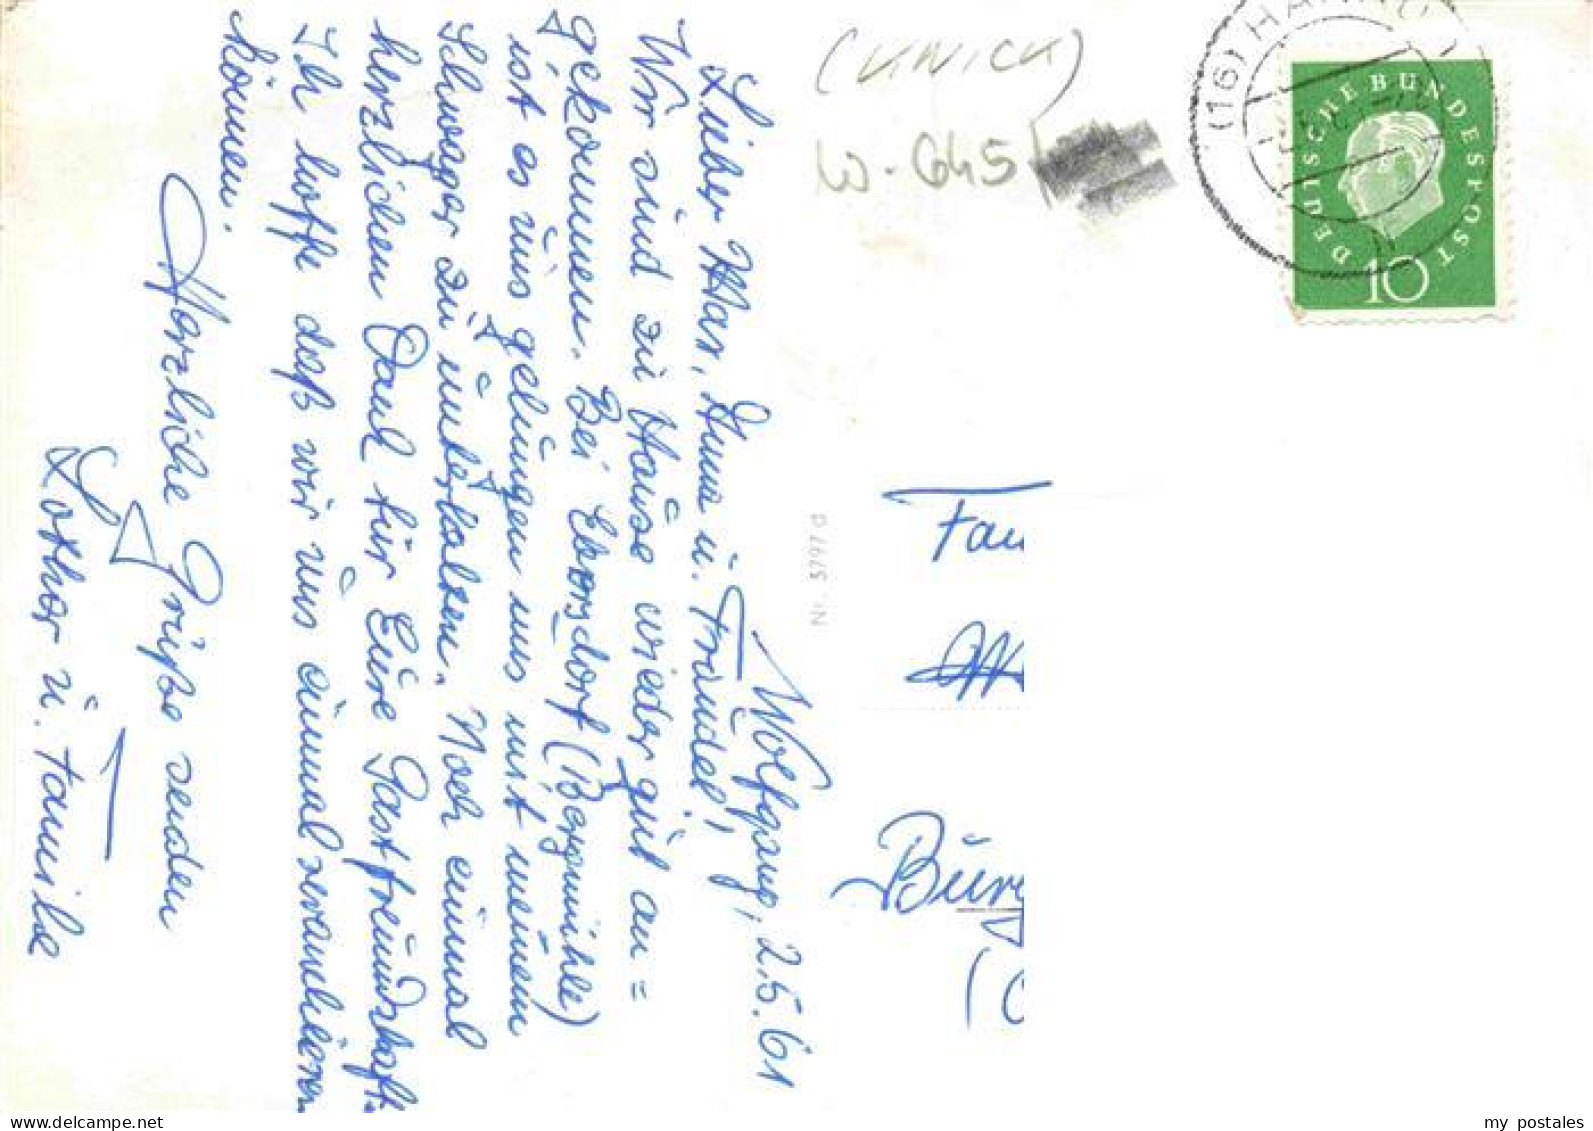 Wolfgang, 2.5.61
Lieber Max, Anna u. Traudel!
Wir sind zu Hause wieder gut an=
gekommen. Bei Ebersdorf (Bergmühle)
ist es uns gelungen uns mit meinem
Schwager zu unterhalten. Noch einmal
herzlichen Dank für Eure Gastfreundschaft.
Ich hoffe daß wir uns einmal revanchieren
können.
Herzliche Grüße senden
Lothar u. Familie
(KWICK)
W-645
(16) HANNO
DEUTSCHE BUNDESPOST
10
Nr. 5797 d
Fam
Burg
(
my postales